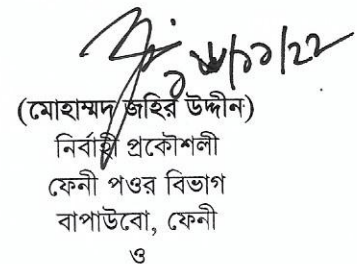 (মোহাম্মদ জহির উদ্দীন)
নির্বাহী প্রকৌশলী
ফেনী পওর বিভাগ
বাপাউবো, ফেনী
ও